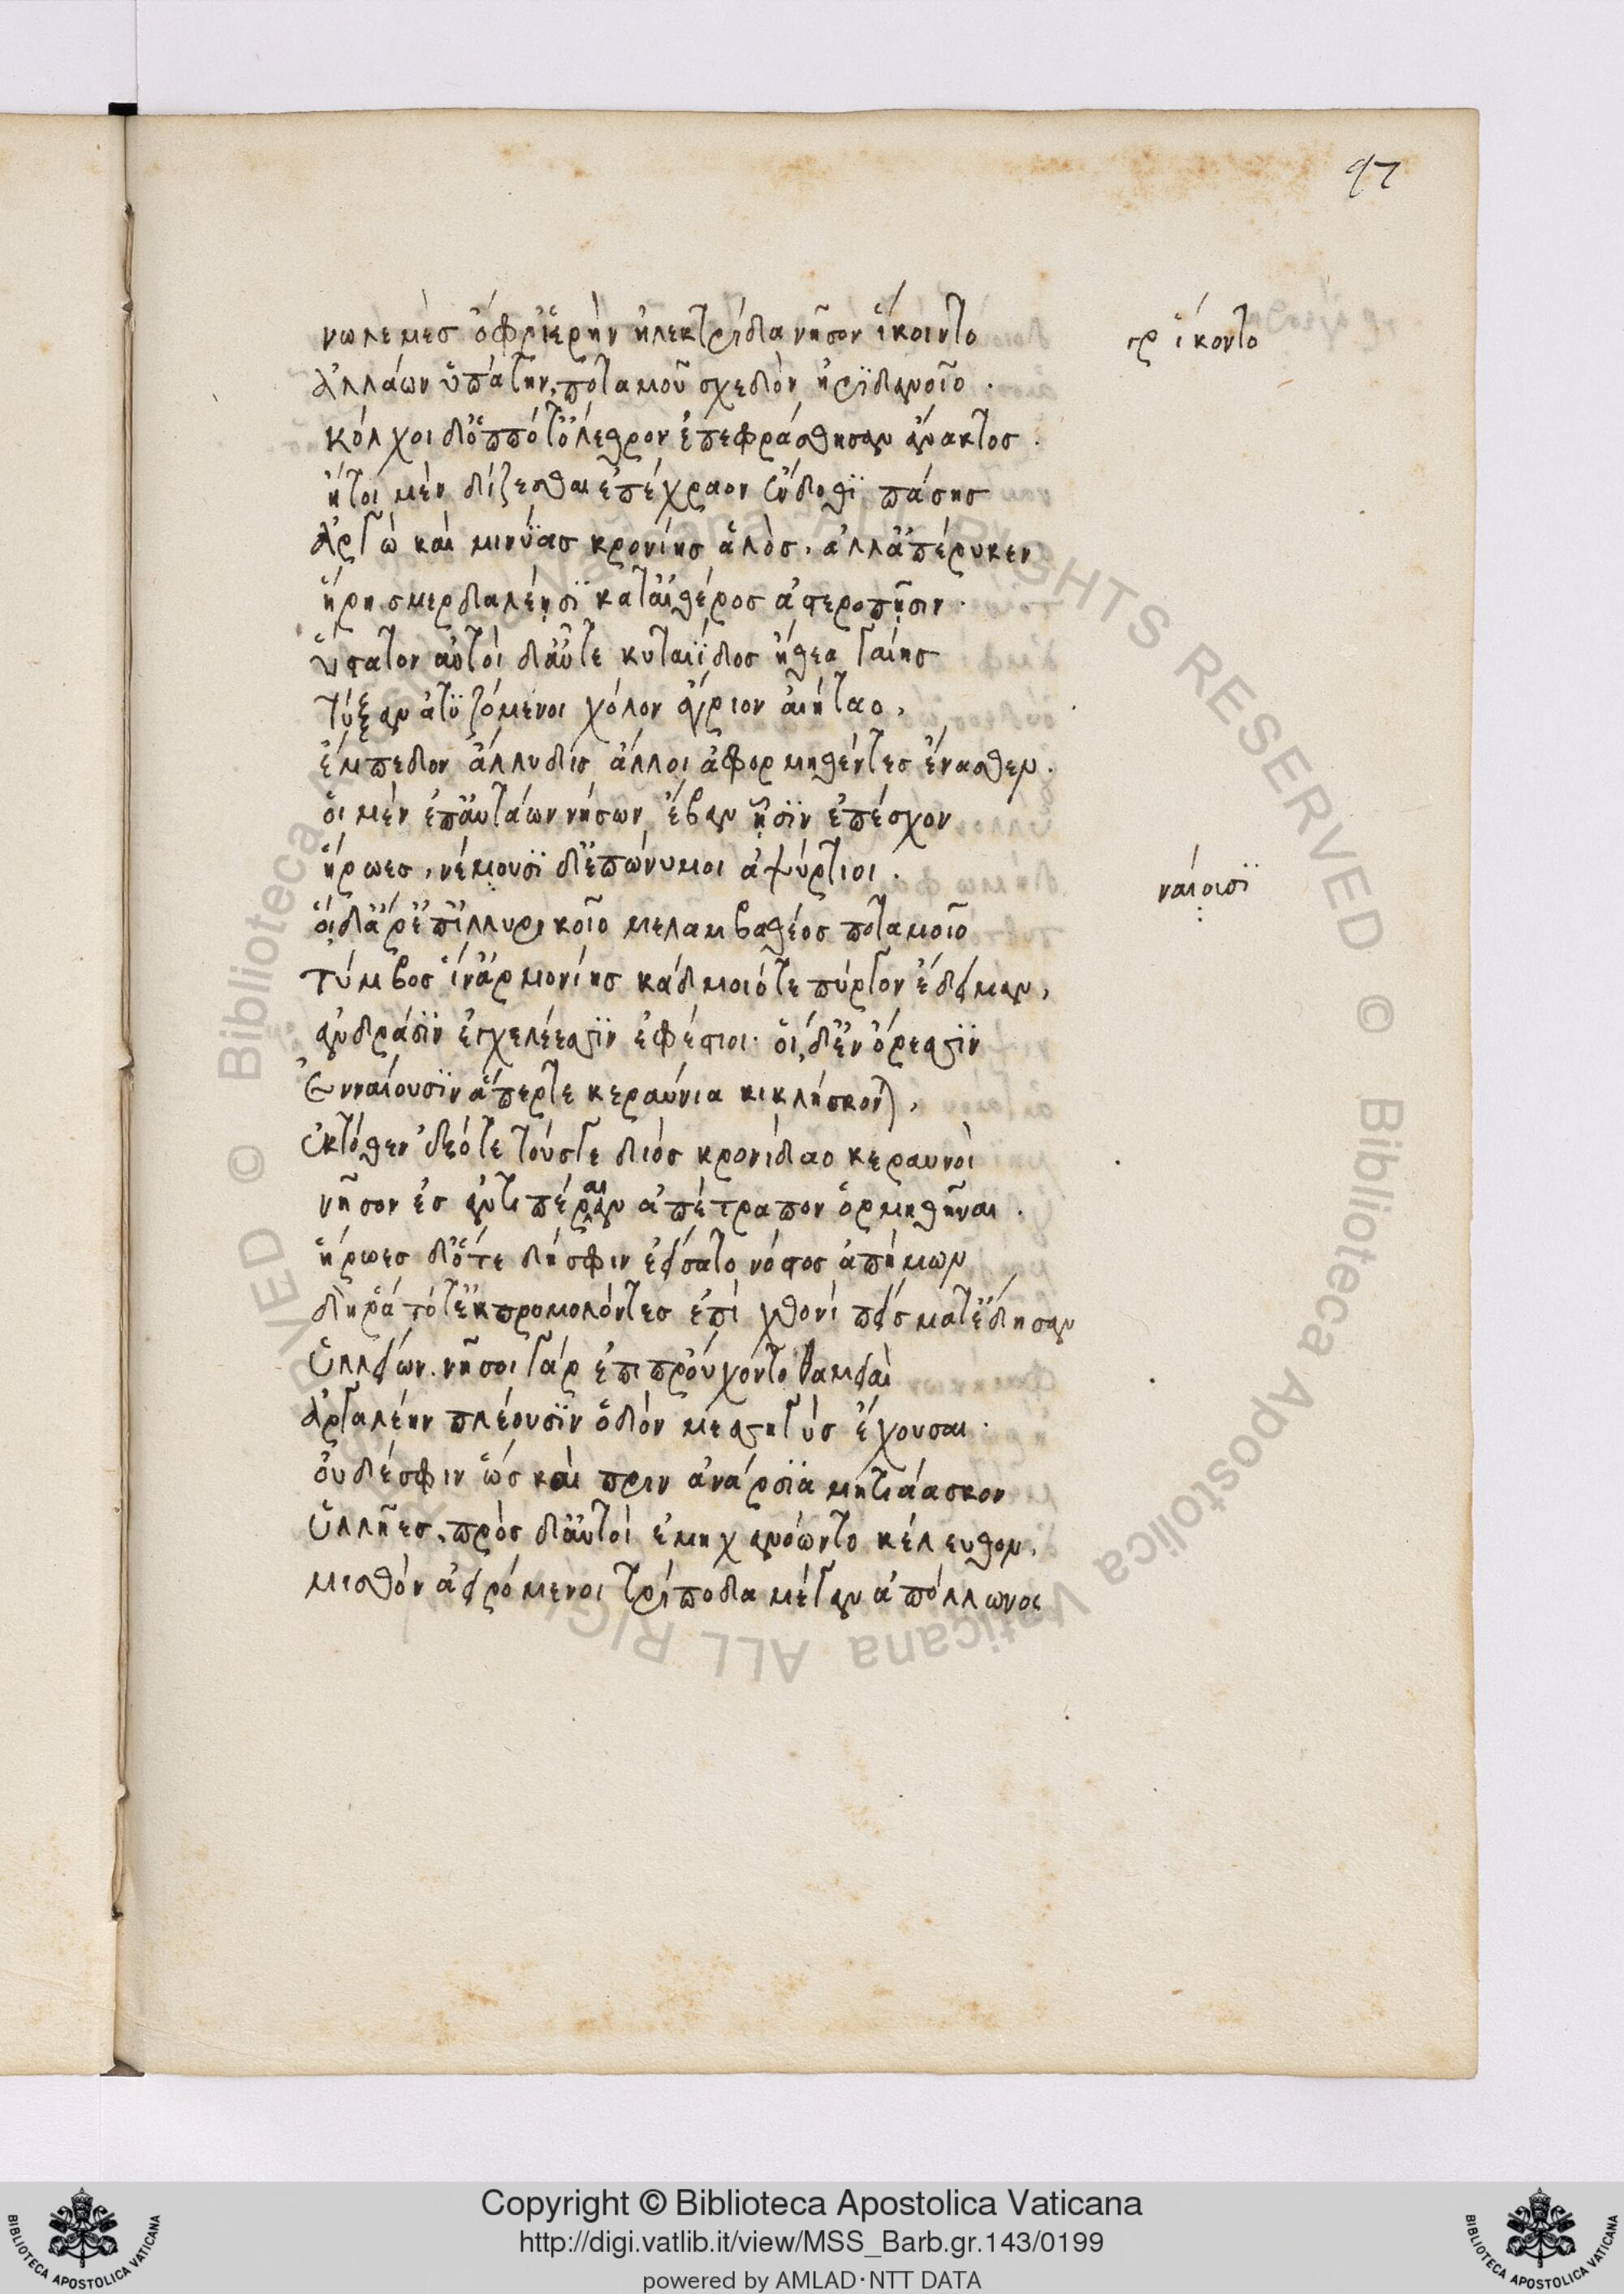 97
νωλεμὲσ ὄφρ' ἱερὴν ἠλεκτρίδα νῆσον ἵκοιντο
γρ ἵκοντο
ἀλλάων ὑπάτην, ποταμοῦ σχεδὸν ἠριδανοῖο.
κόλχοι δ' ὁππότ' ὄλεθρον ἐπεφράσθησαν ἄνακτος.
ἤτοι μὲν δίζεσθαι ἐπέχραον ἔνδοθι πάσησ
ἀργὼ καὶ μινύασ κρονίησ ἁλὸσ. ἀλλ' ἀπέρυκεν
ἥρη σμερδαλέῃσι κατ' αἰθέρος ἀστεροπῇσιν.
ὕστατον αὐτοὶ δ' αὖτε κυταιίδοσ ἤθεα γαίησ
τύξαν ἀτυζόμενοι χόλον ἄγριον αἰήταο,
ἔμπεδον ἄλλυδισ ἄλλοι ἀφορμηθέντεσ ἔνασθεν.
οἱ μὲν ἐπ' αὐτάων νήσων ἔβαν ᾗσιν ἐπέσχον
ἥρωεσ, νέμουσι δ' ἐπώνυμοι ἀψύρτιοι.
ναίοισι
οἱ δ' ἄρ' ἐπ' ἰλλυρικοῖο μελαμβαθέος ποταμοῖο
τύμβος ἵν' ἁρμονίησ κάδμοιό τε πύργον ἔδειμαν,
ἀνδράσιν ἐγχελέεσσιν ἐφέστιοι. οἱ δ' ἐν ὄρεσσιν
ἐνναίουσιν ἅπερ τε κεραύνια κικλήσκονται,
ἐκτόθεν ἐξότε τούσγε διόσ κρονίδαο κεραυνοὶ
νῆσον ἐσ ἀντιπέραιαν ἀπέτραπον ὁρμηθῆναι.
ἥρωεσ δ' ὅτε δή σφιν ἐείσατο νόστοσ ἀπήμων
δή ῥα τότ' ἐκπρομολόντεσ ἐπὶ χθονὶ πείσματ' ἔδησαν
ὑλλείων. νῆσοι γὰρ ἐπιπρούχοντο θαμειαὶ
ἀργαλέην πλέουσιν ὁδὸν μεσσηγὺσ ἔχουσαι.
οὐδέ σφιν ὡσ καὶ πριν ἀνάρσια μητιάασκον
ὑλλῆεσ, πρὸσ δ' αὐτοὶ ἐμηχανόωντο κέλευθον,
μισθὸν ἀειρόμενοι τρίποδα μέγαν ἀπόλλωνος
Biblioteca Apostolica Vaticana ALL RIGHTS RESERVED ©
Copyright © Biblioteca Apostolica Vaticana
http://digi.vatlib.it/view/MSS_Barb.gr.143/0199
powered by AMLAD·NTT DATA
BIBLIOTECA APOSTOLICA VATICANA
BIBLIOTECA APOSTOLICA VATICANA